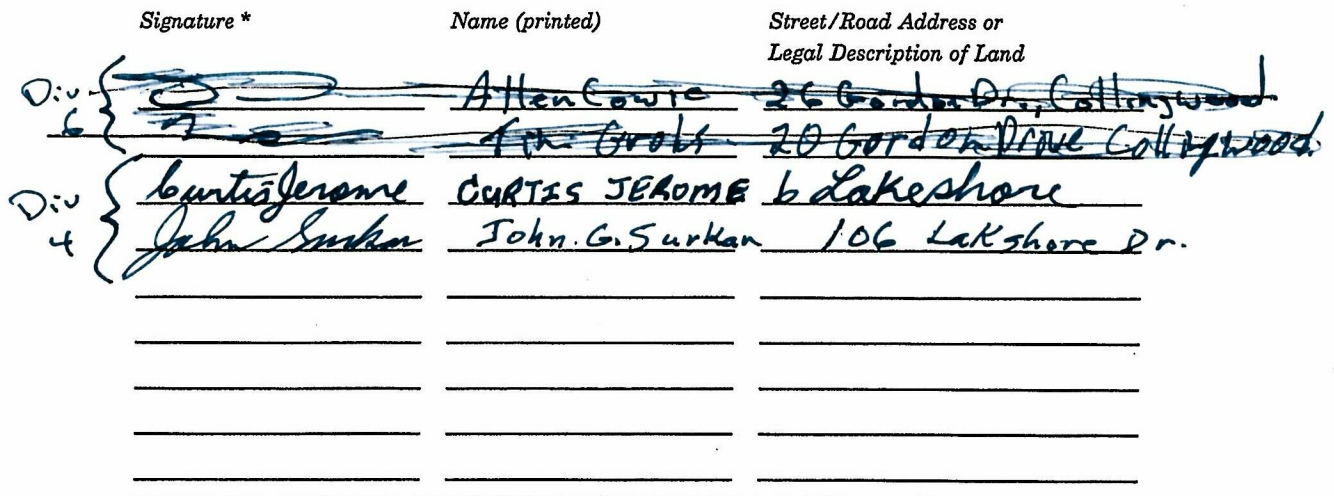 Signature * Name (printed) Street/Road Address or
Legal Description of Land
Div 6 Allen Cowie 26 Gordon Dr., Collingwood
Grobs 20 Gordon Drive Collingwood
Div 4 Curtis Jerome CURTIS JEROME 6 Lakeshore
John Surkan John. G. Surkan 106 Lakshore Dr.